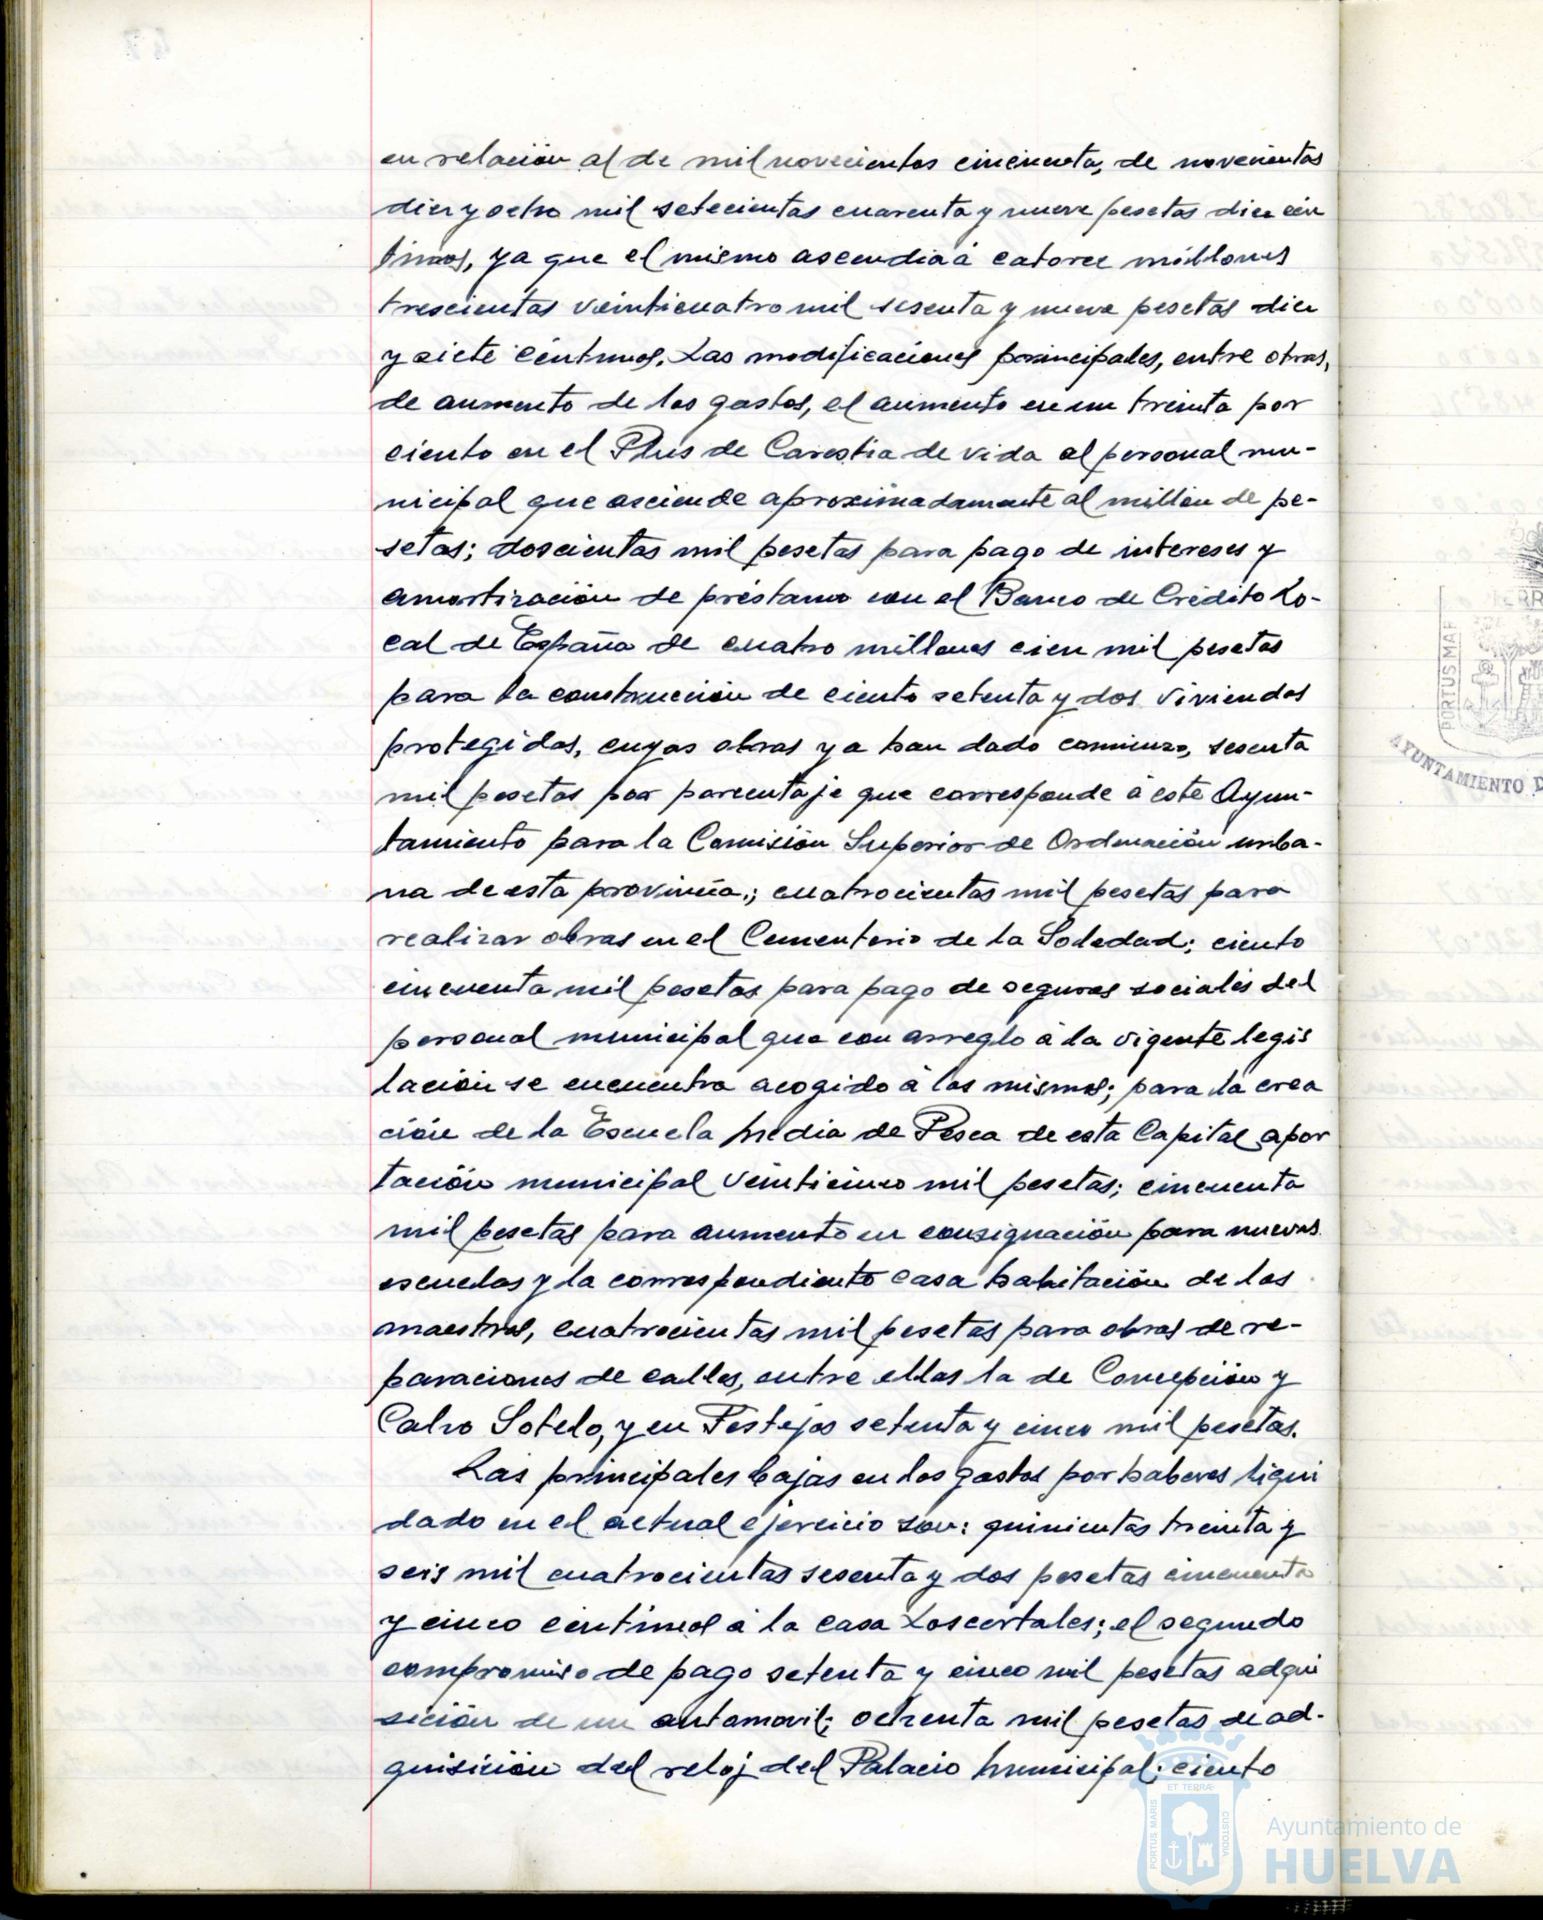 en relación al de mil novecientos cincuenta, de novecientas
diez y ocho mil setecientas cuarenta y nueve pesetas diez cén
timos, ya que el mismo ascendia á catorce millones
trescientas veinticuatro mil sesenta y nueve pesetas diez
y siete céntimos. Las modificaciones principales, entre otras,
de aumento de los gastos, el aumento en un treinta por
ciento en el Plus de Carestia de vida al personal mu-
nicipal que asciende aproximadamente al millón de pe-
setas; doscientas mil pesetas para pago de intereses y
amortización de préstamo con el Banco de Crédito Lo-
cal de España de cuatro millones cien mil pesetas
para la construcción de ciento setenta y dos viviendas
protegidas, cuyas obras ya han dado comienzo, sesenta
mil pesetas por porcentaje que corresponde á este Ayun-
tamiento para la Comisión Superior de Ordenación urba-
na de esta provincia.; cuatrocientas mil pesetas para
realizar obras en el Cementerio de la Soledad; ciento
cincuenta mil pesetas para pago de seguros sociales del
personal municipal que con arreglo á la vigente legis
lación se encuentra acogido á los mismos; para la crea
ción de la Escuela Media de Pesca de esta Capital apor
tación municipal veinticinco mil pesetas; cincuenta
mil pesetas para aumento en consignación para nuevas
escuelas y la correspondiente casa habitación de los
maestros, cuatrocientas mil pesetas para obras de re-
paraciones de calles, entre ellas la de Concepción y
Calvo Sotelo, y en Festejos setenta y cinco mil pesetas.
Las principales bajas en los gastos por haberes liqui
dado en el actual ejercicio son: quinientas treinta y
seis mil cuatrocientas sesenta y dos pesetas cincuenta
y cinco céntimos á la casa Loscertales; el segundo
compromiso de pago setenta y cinco mil pesetas adqui
sición de un automovil; ochenta mil pesetas de ad-
quisición del reloj del Palacio Municipal; ciento
PORTUS MAR
AYUNTAMIENTO D
ET TERRÆ
PORTUS MARIS
CUSTODIA
Ayuntamiento de
HUELVA